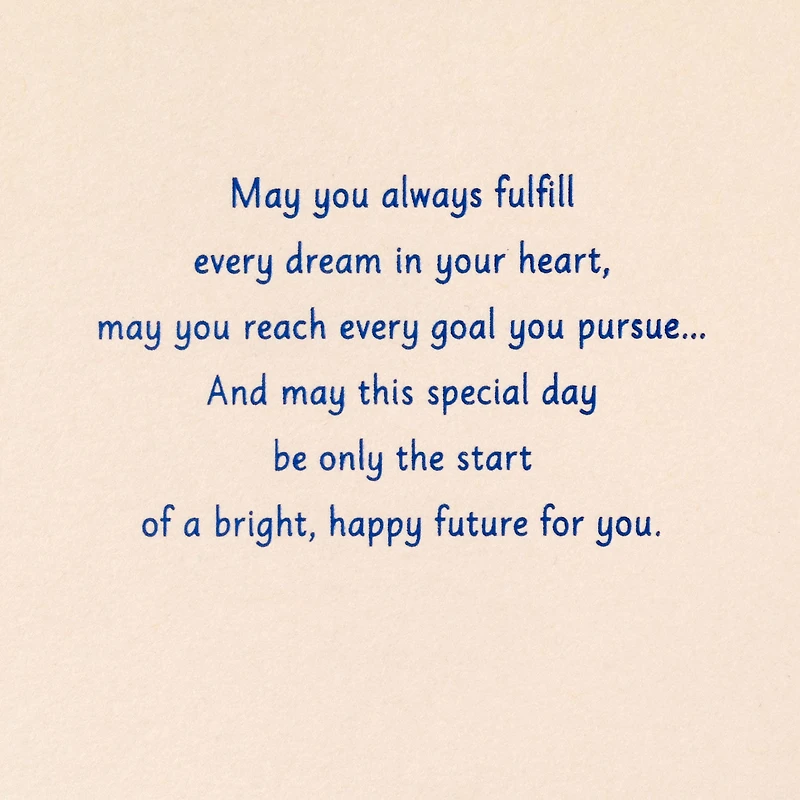 May you always fulfill
every dream in your heart,
may you reach every goal you pursue...
And may this special day
be only the start
of a bright, happy future for you.